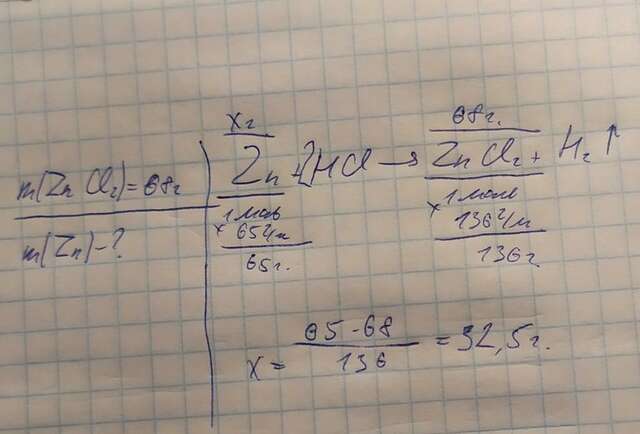 m(ZnCl₂)=68г
m(Zn)-?
xг 68г.
Zn + 2HCl → ZnCl₂ + H₂↑
1моль 1моль
× 65г/м × 136г/м
65г. 136г
x = 65-68 / 136 = 32,5г.